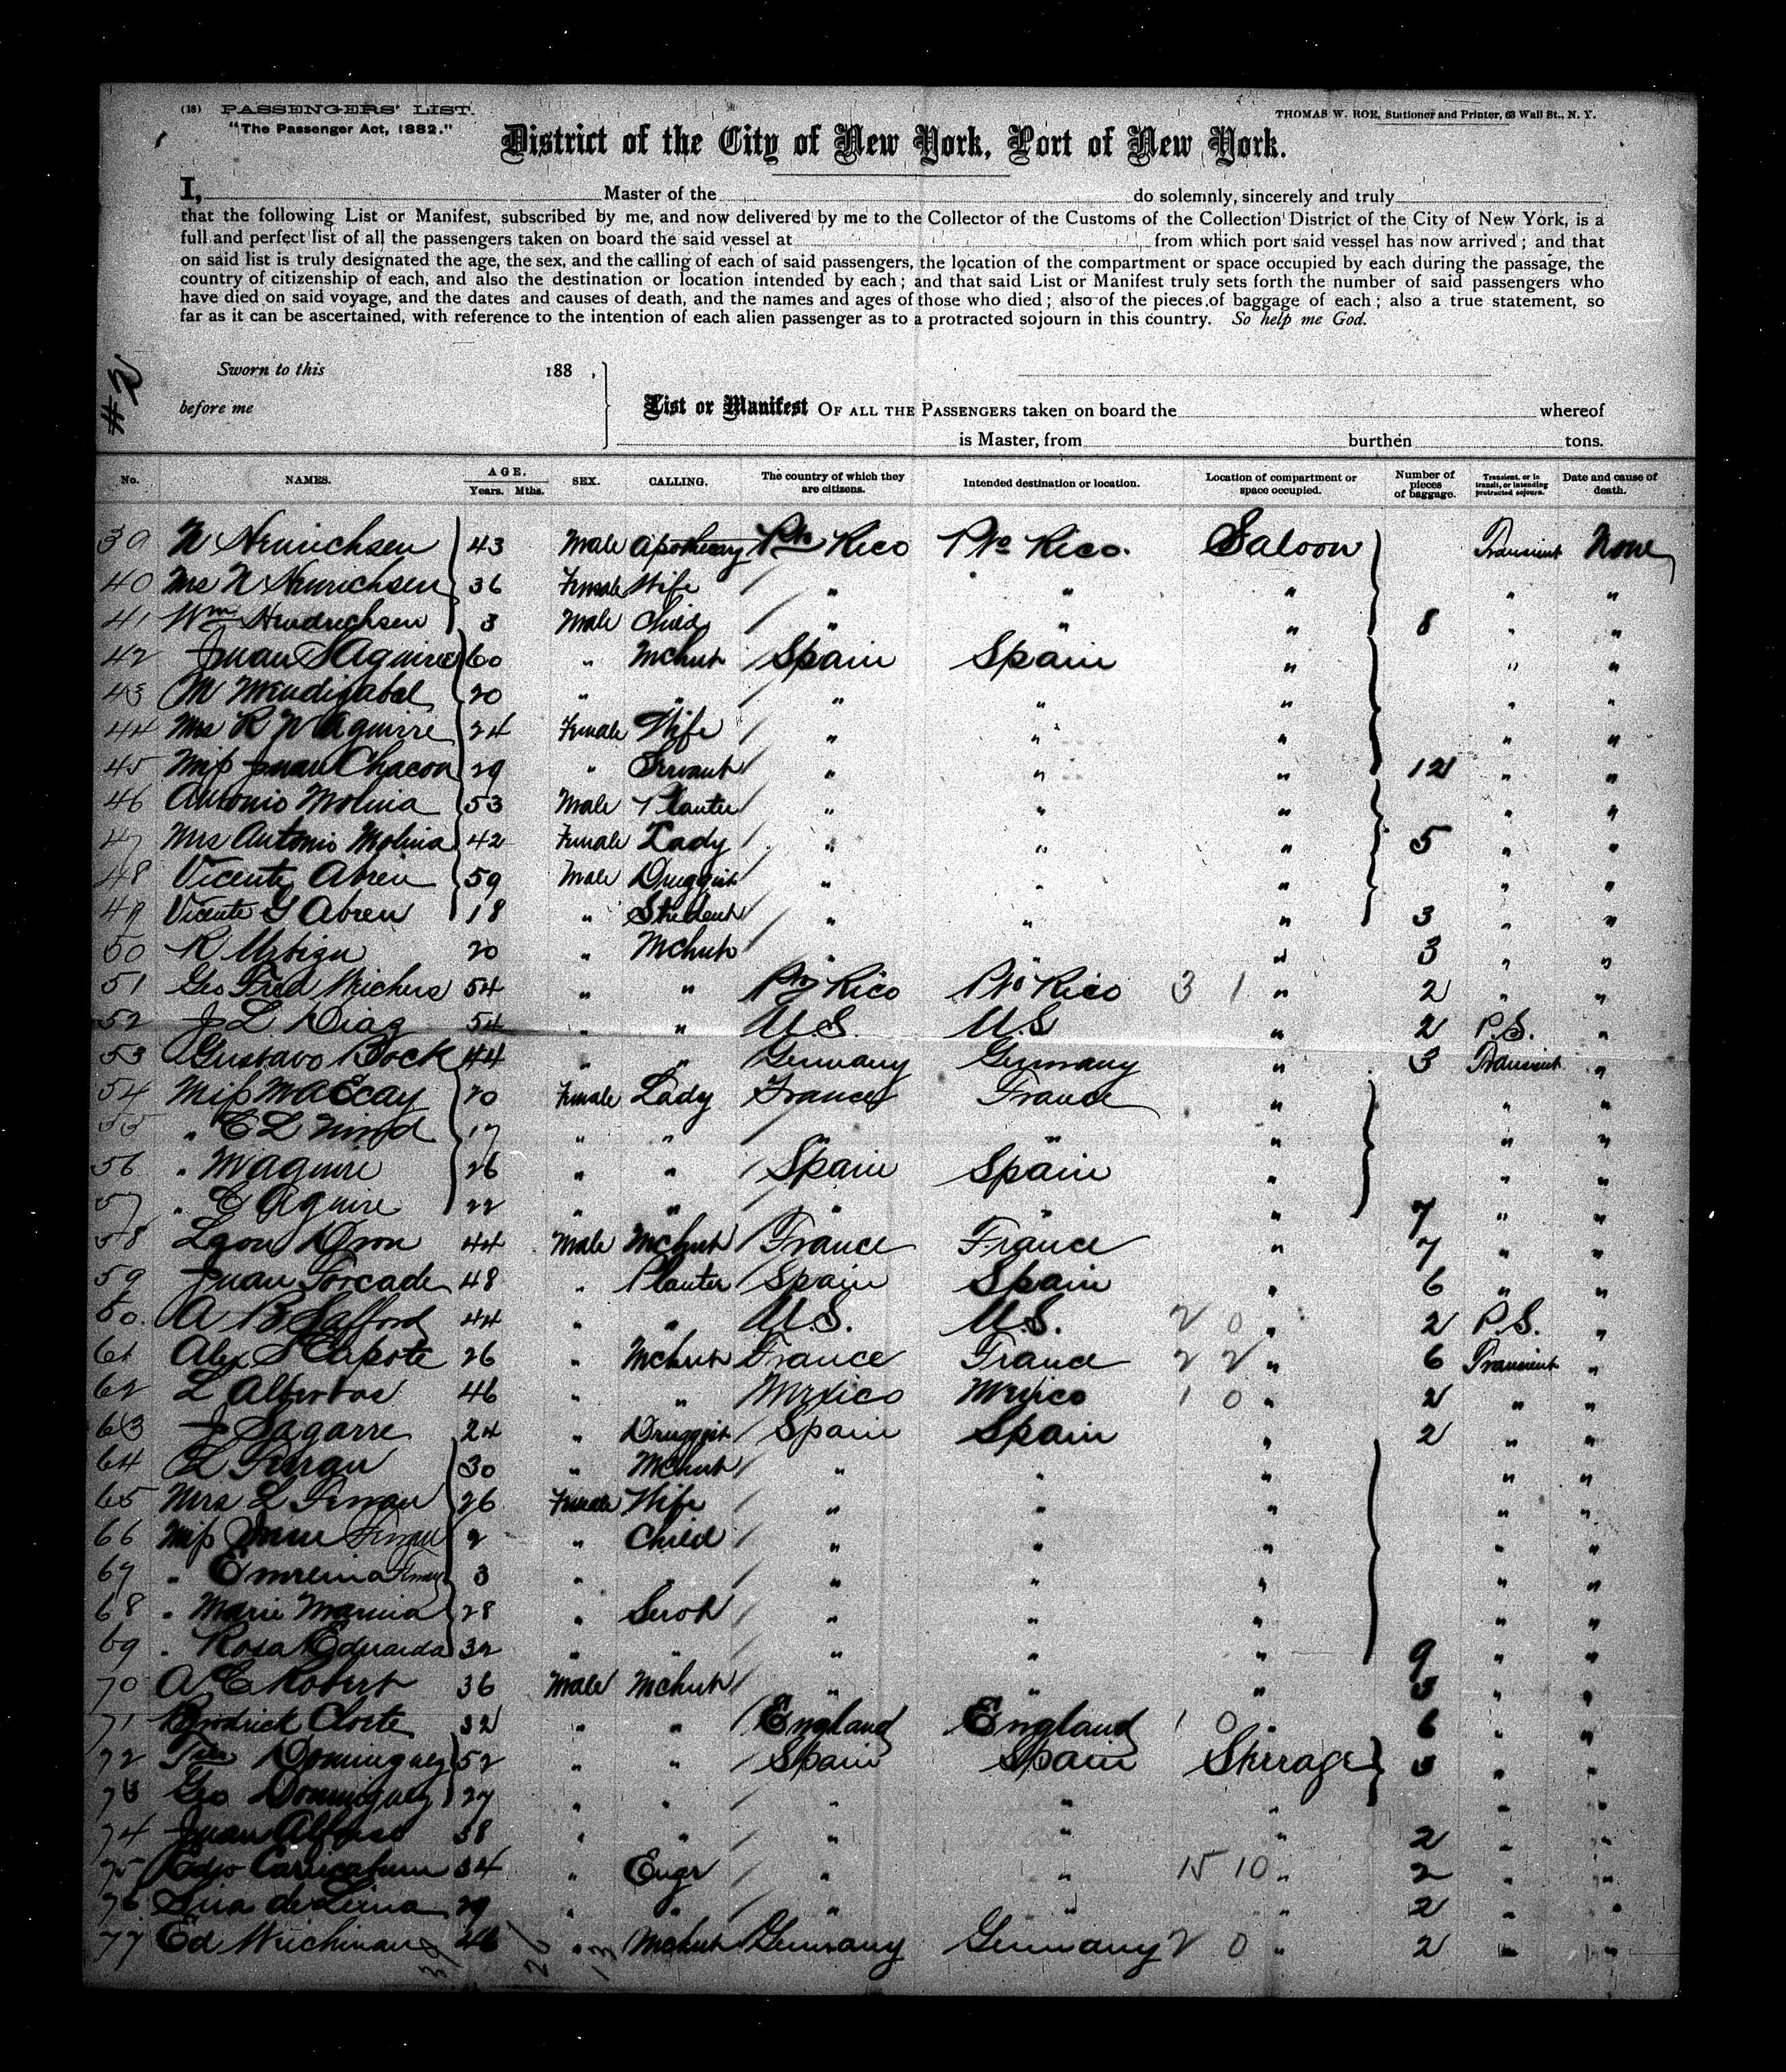 (18) PASSENGERS' LIST.
"The Passenger Act, 1882."
THOMAS W. ROE, Stationer and Printer, 63 Wall St., N. Y.
District of the City of New York, Port of New York.
I, Master of the do solemnly, sincerely and truly
that the following List or Manifest, subscribed by me, and now delivered by me to the Collector of the Customs of the Collection District of the City of New York, is a
full and perfect list of all the passengers taken on board the said vessel at from which port said vessel has now arrived; and that
on said list is truly designated the age, the sex, and the calling of each of said passengers, the location of the compartment or space occupied by each during the passage, the
country of citizenship of each, and also the destination or location intended by each; and that said List or Manifest truly sets forth the number of said passengers who
have died on said voyage, and the dates and causes of death, and the names and ages of those who died; also of the pieces of baggage of each; also a true statement, so
far as it can be ascertained, with reference to the intention of each alien passenger as to a protracted sojourn in this country. So help me God.
#2
Sworn to this 188 ,
before me
List or Manifest OF ALL THE PASSENGERS taken on board the whereof
is Master, from burthen tons.
No. NAMES. AGE. Years. Mths. SEX. CALLING. The country of which they are citizens. Intended destination or location. Location of compartment or space occupied. Number of pieces of baggage. Transient, or in transit, or intending protracted sojourn. Date and cause of death.
39 N Henrichsen 43 Male Apothecary Pto Rico Pto Rico. Saloon Transient None
40 Mrs N Henrichsen 36 Female Wife " " " " "
41 Wm Hendrichsen 3 Male Child " " " 8 " "
42 Juan S Aguirre 60 " Mchnt Spain Spain " " "
43 M Mendizabal 20 " " " " " " "
44 Mrs R W Aguirre 24 Female Wife " " " " "
45 Miss Juan Chacon 29 " Servant " " " 12 " "
46 Antonio Molina 53 Male Planter " " " " "
47 Mrs Antonio Molina 42 Female Lady " " " 5 " "
48 Vicente Abreu 59 Male Druggist " " " " "
49 Vicente G Abreu 18 " Student " " " 3 " "
50 R 20 " Mchnt " " " 3 " "
51 Geo Fred Wichers 54 " " Pto Rico Pto Rico 3 1 " 2 " "
52 J L Diaz 54 " " U.S. U.S " 2 P.S. "
53 Gustavo Bock 44 " " Germany Germany " 3 Transient "
54 Miss 20 Female Lady France France " " "
55 " C L 17 " " " " " " "
56 " M Aguirre 26 " " Spain Spain " " "
57 " C Aguirre 22 " " " " " 7 " "
58 Leon Dron 44 Male Mchnt France France " 7 " "
59 Juan Forcade 48 " Planter Spain Spain " 6 " "
60. A B Safford 44 " " U.S. U.S. 2 0 " 2 P.S. "
61 Alex S Capote 26 " Mchnt France France 2 2 " 6 Transient "
62 L 46 " " Mexico Mexico 1 0 " 2 " "
63 J Sagarre 24 " Druggist Spain Spain " 2 " "
64 L Ferran 30 " Mchnt " " " " "
65 Mrs L Ferran 26 Female Wife " " " " "
66 Miss Ferran 2 " Child " " " " "
67 " Ferran 3 " " " " " " "
68 " Marie Marina 28 " Servt " " " " "
69 " Rosa Eduarda 32 " " " " " 9 " "
70 A E Robert 36 Male Mchnt " " " 3 " "
71 Brodrick Cloete 32 " " England England 1 0 " 6 " "
72 Dominguez 52 " " Spain Spain Steerage 3 " "
73 Geo Dominguez 27 " " " " " " "
74 Juan Alfonso 38 " " " " " 2 " "
75 34 " Engr " " 15 10 " 2 " "
76 de Lima 29 " " " " " 2 " "
77 Ed Wichmann 46 " Mchnt Germany Germany 2 0 " 2 " "